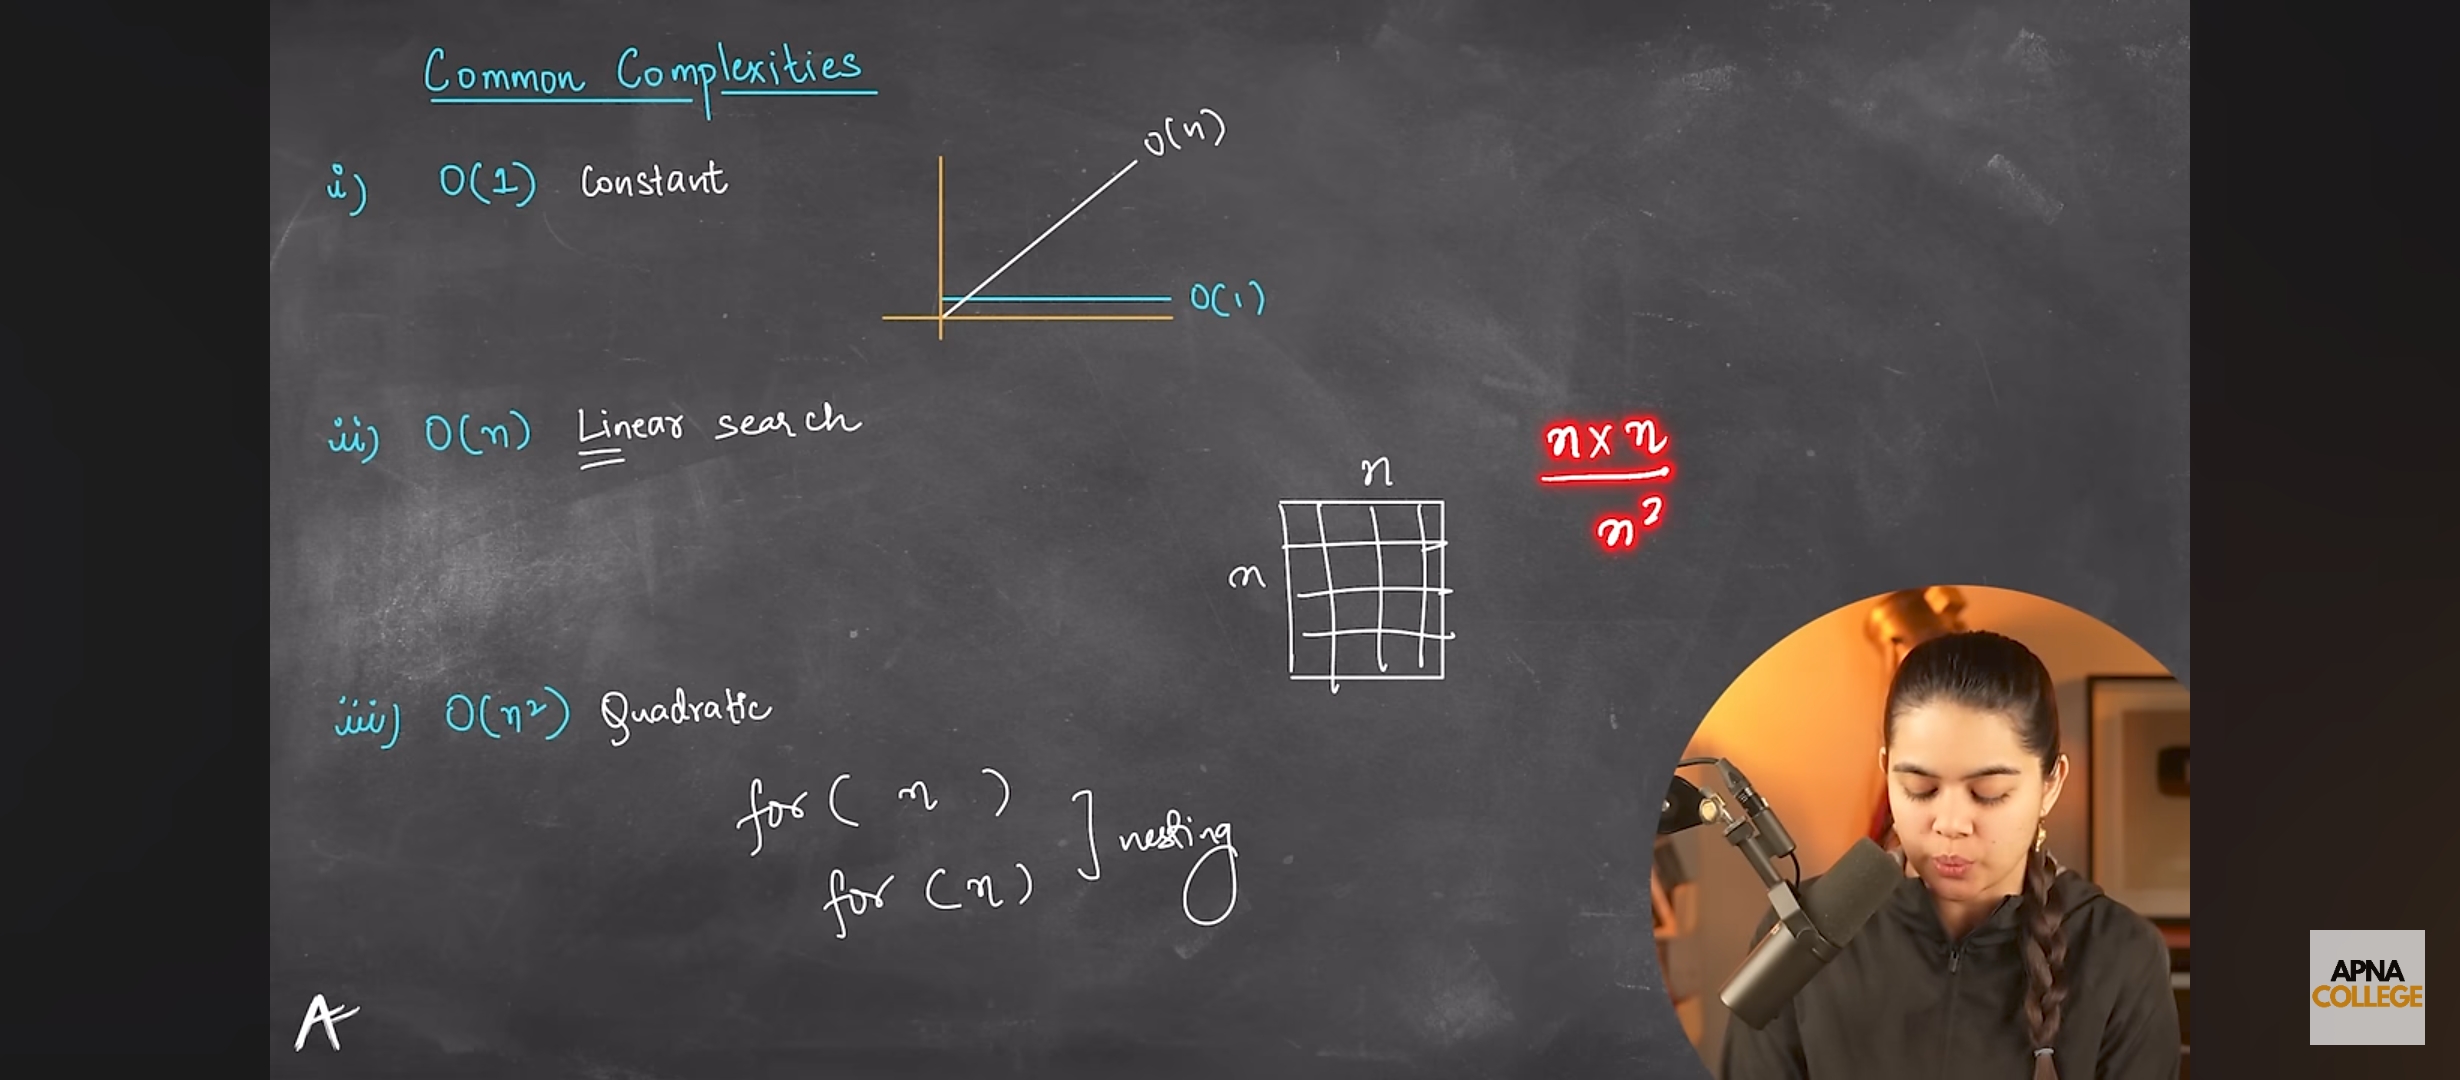 Common Complexities
i) O(1) Constant
O(n)
O(1)
ii) O(n) Linear search
n
n
n x n
n²
iii) O(n²) Quadratic
for ( n )
for (n)
nesting
A
APNA
COLLEGE